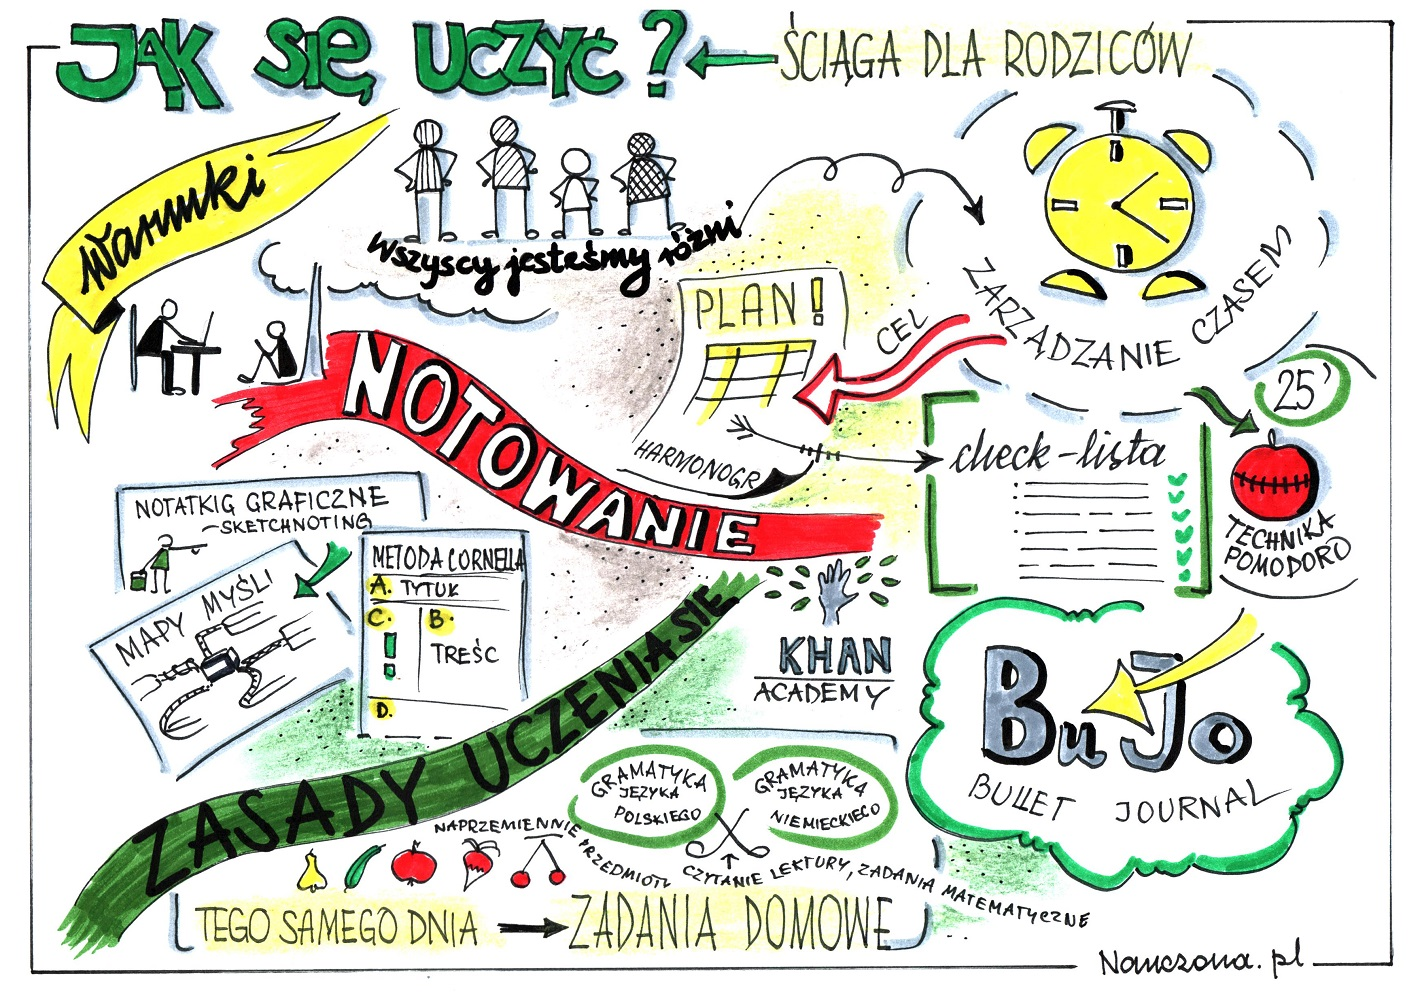 JĄK SIĘ UCZYĆ?
ŚCIĄGA DLA RODZICÓW
Warunki
Wszyscy jesteśmy różni
ZARZĄDZANIE CZASEM
PLAN!
CEL
HARMONOGR
25'
check-lista
TECHNIKA
POMODORO
NOTOWANIE
NOTATKIG GRAFICZNE
-SKETCHNOTING
MAPY MYŚLI
METODA CORNELLA
A. TYTUŁ
C. B.
TREŚC
D.
KHAN
ACADEMY
BuJo
BULLET JOURNAL
ZASADY UCZENIA SIĘ
GRAMATYKA
JĘZYKA
POLSKIEGO
GRAMATYKA
JĘZYKA
NIEMIECKIEGO
NAPRZEMIENNIE PRZEDMIOTY
CZYTANIE LEKTURY, ZADANIA MATEMATYCZNE
TEGO SAMEGO DNIA
ZADANIA DOMOWE
Nauczona.pl